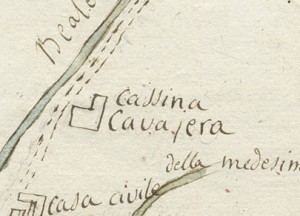 Reale
Cassina
Cavajera
della medesim
Casa civile